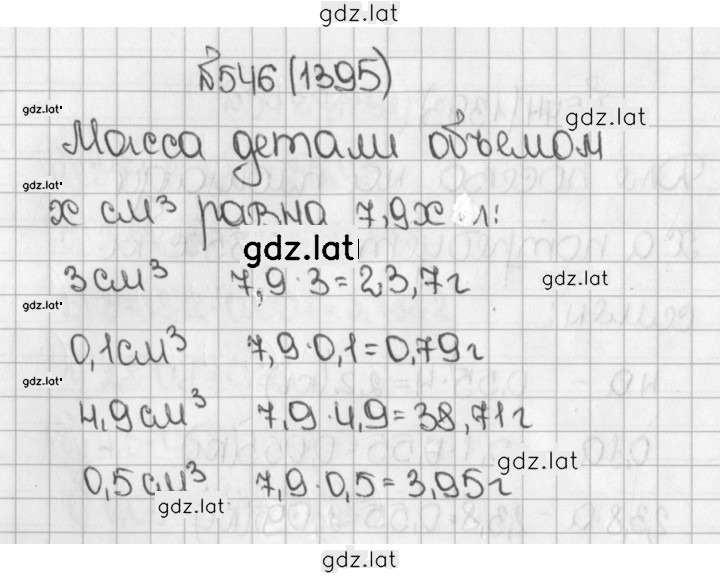 gdz.lat
№546 (1395)
gdz.lat
gdz.lat
Масса детали объемом
gdz.lat
х см³ равна 7,9х г:
gdz.lat
3 см³ 7,9·3=23,7г
gdz.lat
gdz.lat
0,1см³ 7,9·0,1=0,79г
gdz.lat
4,9см³ 7,9·4,9=38,71г
gdz.lat
0,5см³ 7,9·0,5=3,95г
gdz.lat
gdz.lat